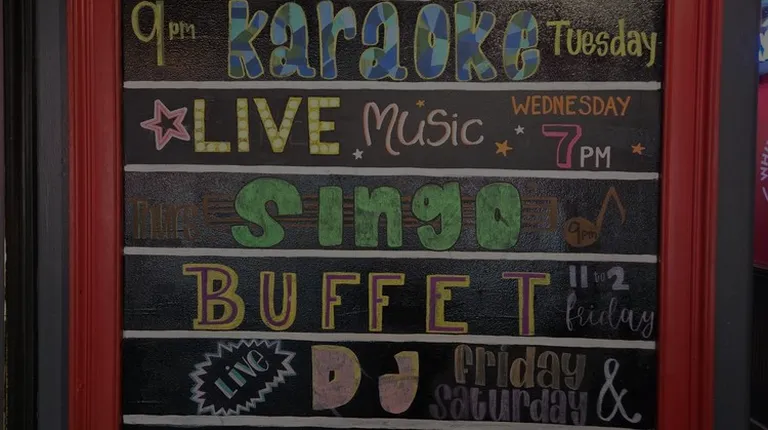 9pm karaoke Tuesday
LIVE Music WEDNESDAY 7PM
THURS Singo 9pm
BUFFET 11 to 2 friday
LIVE DJ friday & saturday